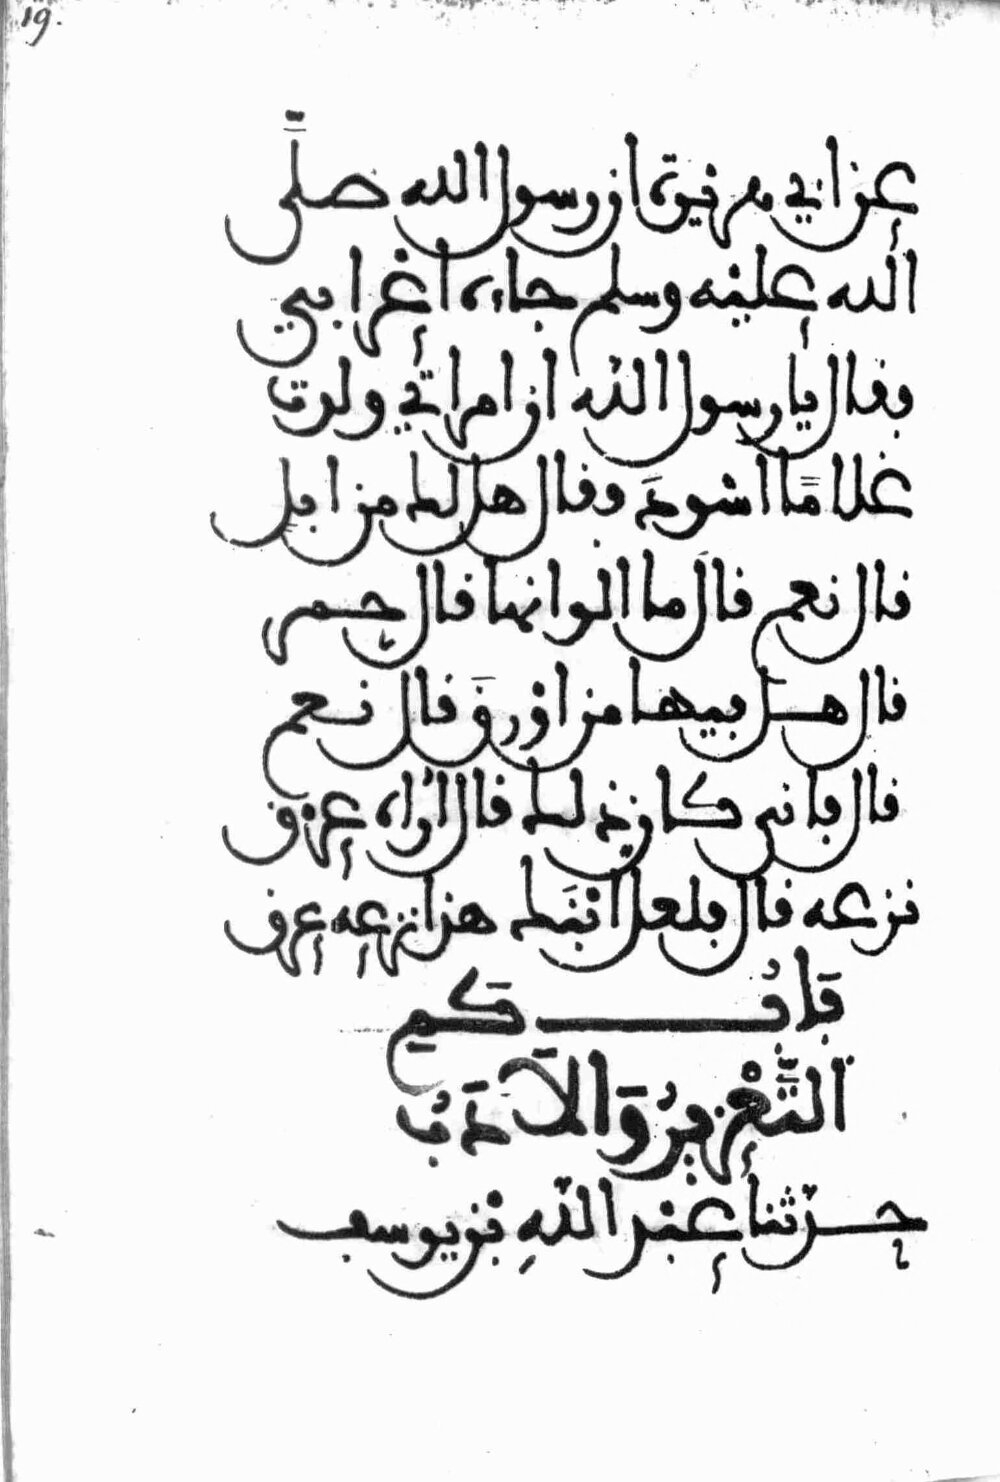 19.
عن ابي هريرة ان رسول الله صلى
الله عليه وسلم جاءه اعرابي
فقال يا رسول الله ان امراتي ولدت
غلامًا اسودَ فقال هل لك من ابل
قال نعم قال ما الوانها قال حمر
قال هل فيها من اوْرقَ قال نعم
قال فانى كان ذلك قال اُراه عرق
نزعه قال فلعل ابنَك هذا نزعه عرق
بَابُ كَمِ
التَّعْزِيرُ وَالاَدَبُ
حدّثنا عبْد اللهِ بْن يوسف